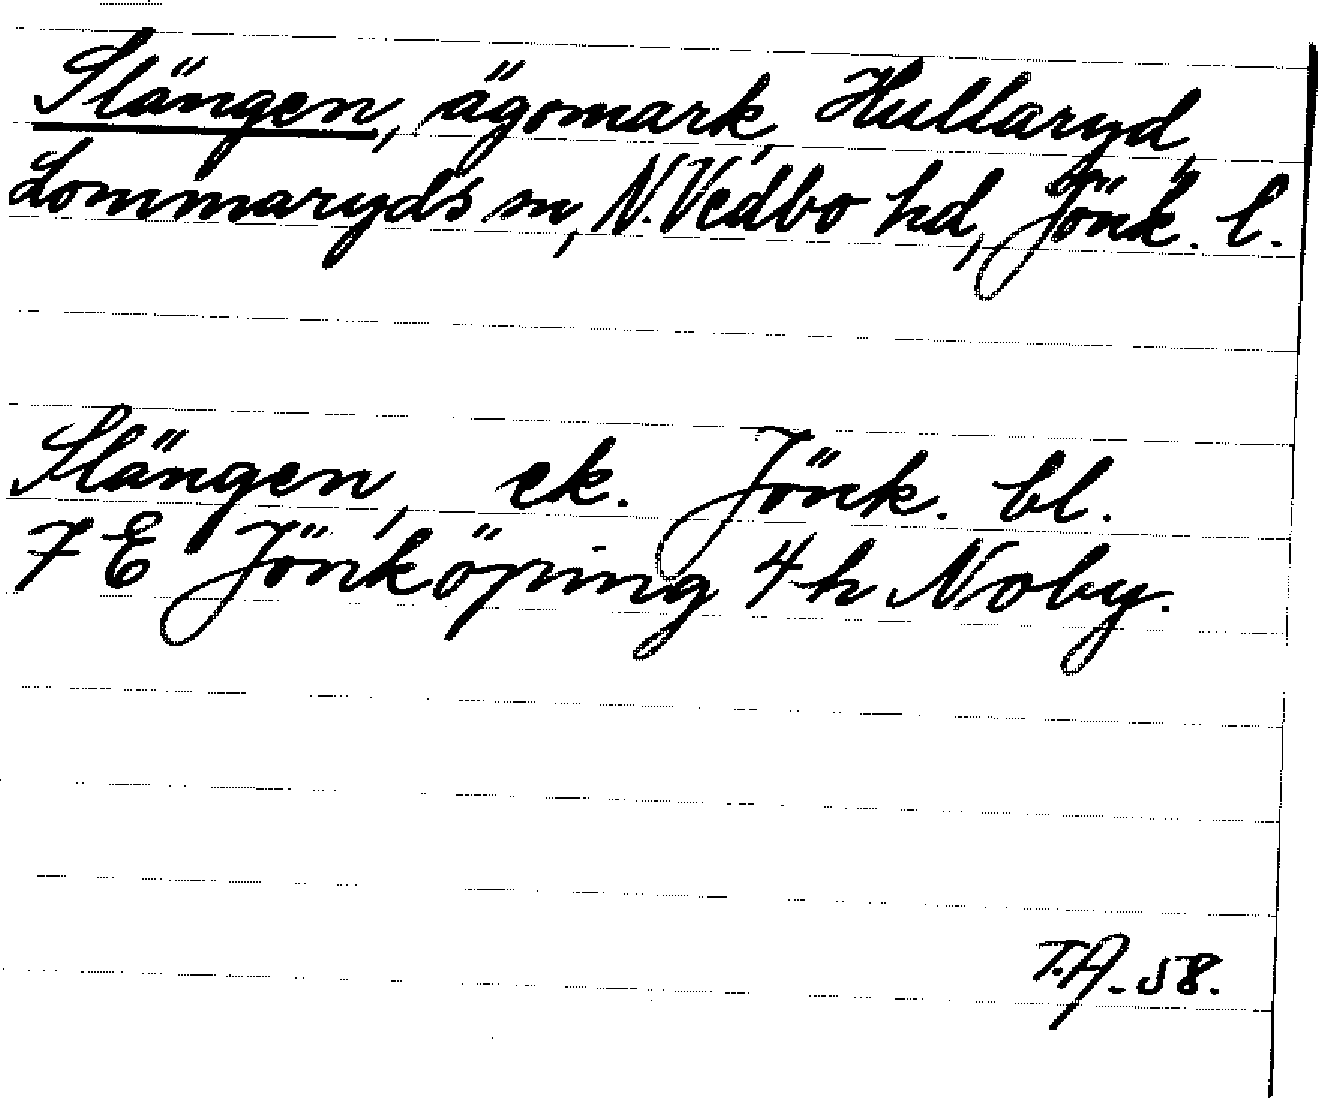 Slängen, ägomark, Hullaryd,
Lommaryds sn, N. Vedbo hd, Jönk. l.
Slängen, ek. Jönk. bl.
7 E Jönköping 4 h Noby.
T.A. 58.